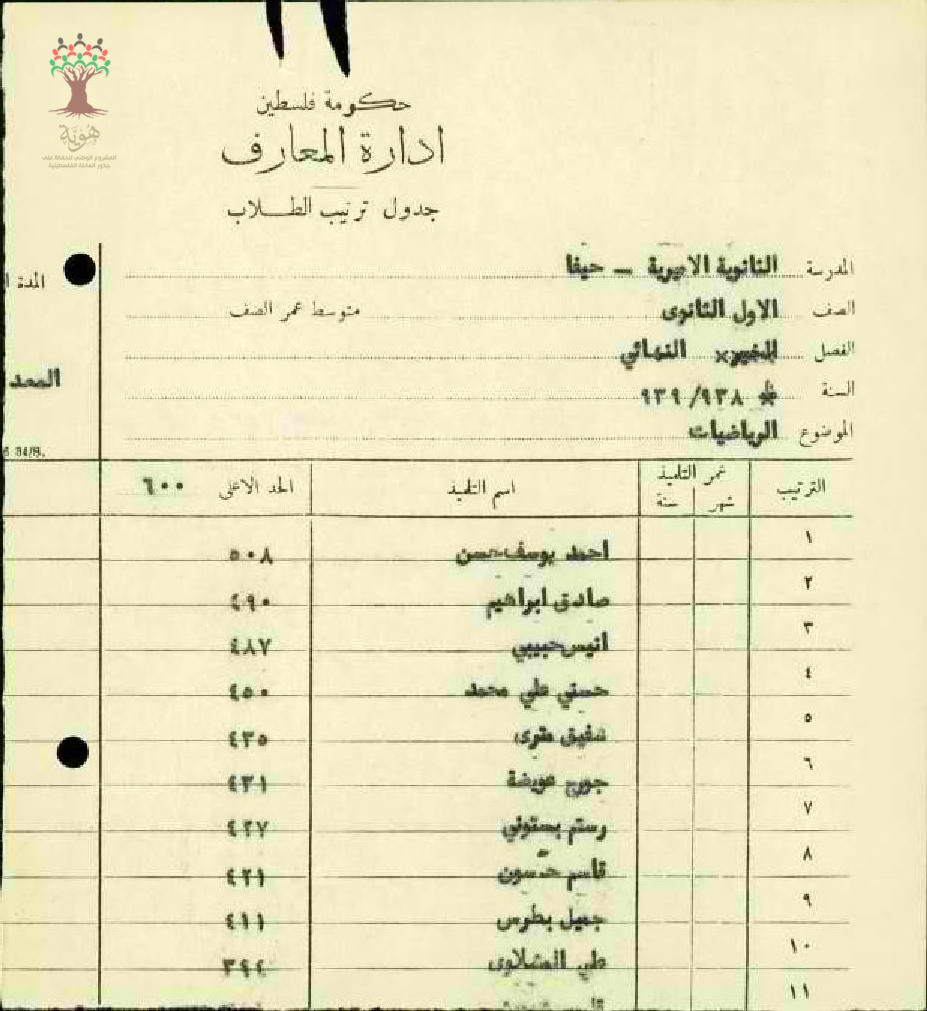 هوية
المشروع الوطني للحفاظ على
جذور العائلة الفلسطينية
حكومة فلسطين
ادارة المعارف
جدول ترتيب الطلاب
المدرسة الثانوية الاميرية - حيفا
الصف الاول الثانوى متوسط عمر الصف
الفصل النهائي
السنة ٩٣٨/٩٣٩
الموضوع الرياضيات
المدة
المعد
6 34/B.
الترتيب عمر التلميذ اسم التلميذ الحد الاعلى ٦٠٠
شهر سنة
١ احمد يوسف حسن ٥٠٨
٢ صادق ابراهيم ٤٩٠
٣ انيس حبيبي ٤٨٧
٤ حسني علي محمد ٤٥٠
٥ شفيق ٤٣٥
٦ جورج عويضة ٤٣١
٧ رستم بستوني ٤٢٧
٨ قاسم حسون ٤٢١
٩ جميل بطرس ٤١١
١٠ علي ٣٩٤
١١